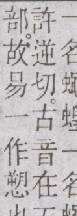 一名蠅蝗一
許逆切。古音在五
部。故易一作愬